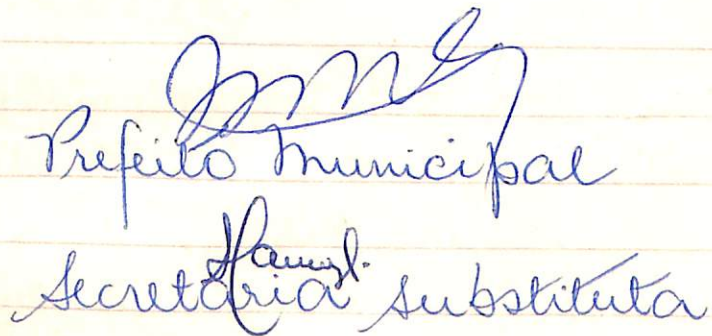 Prefeito Municipal
Secretária Substituta